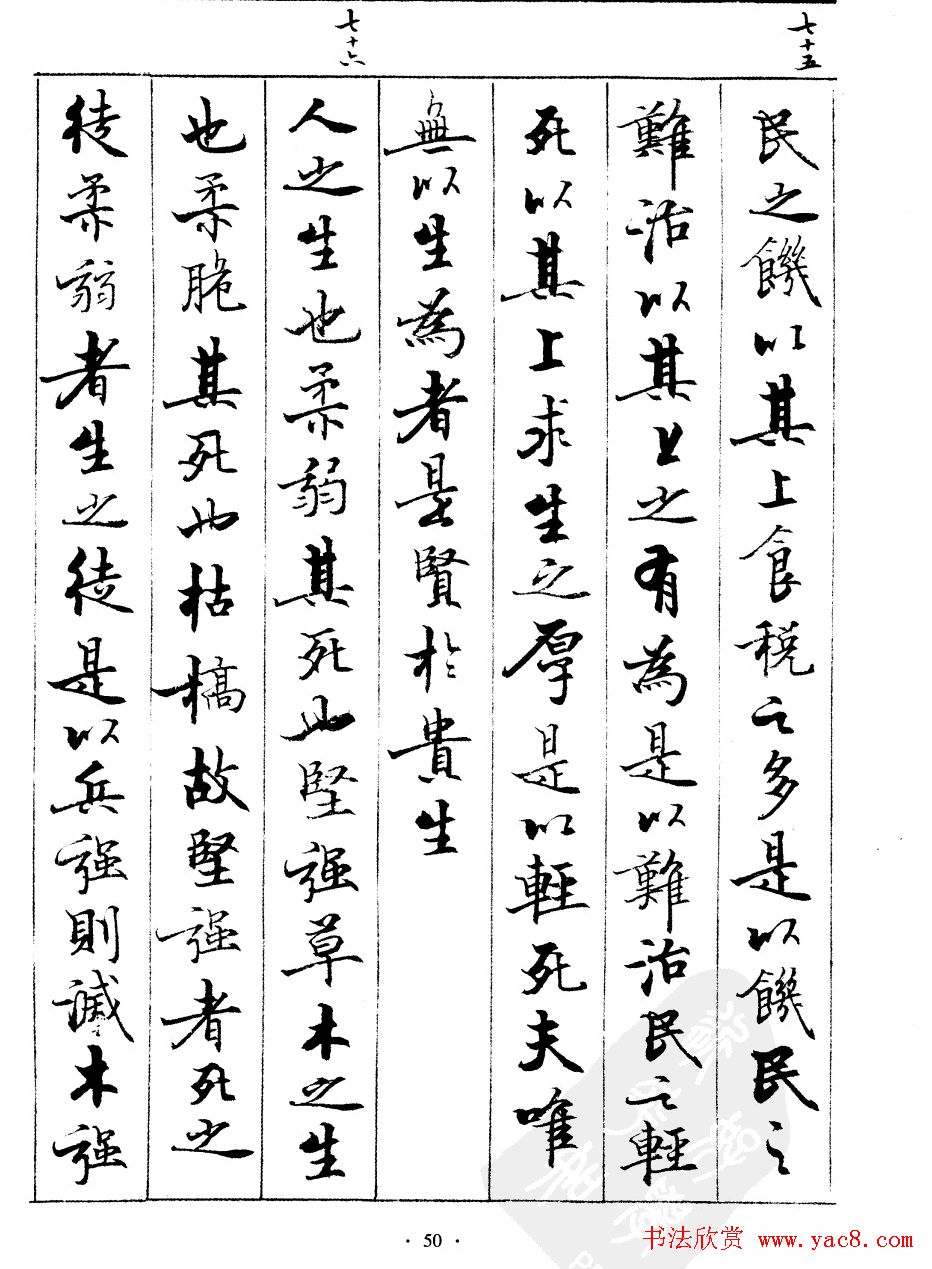 七十五
民之饑以其上食税之多是以饑民之
難治以其上之有為是以難治民之輕
死以其上求生之厚是以輕死夫唯
無以生為者是賢於貴生
七十六
人之生也柔弱其死也堅强草木之生
也柔脆其死也枯槁故堅强者死之
徒柔弱者生之徒是以兵强則滅木强
· 50 ·
书法欣赏 www.yac8.com